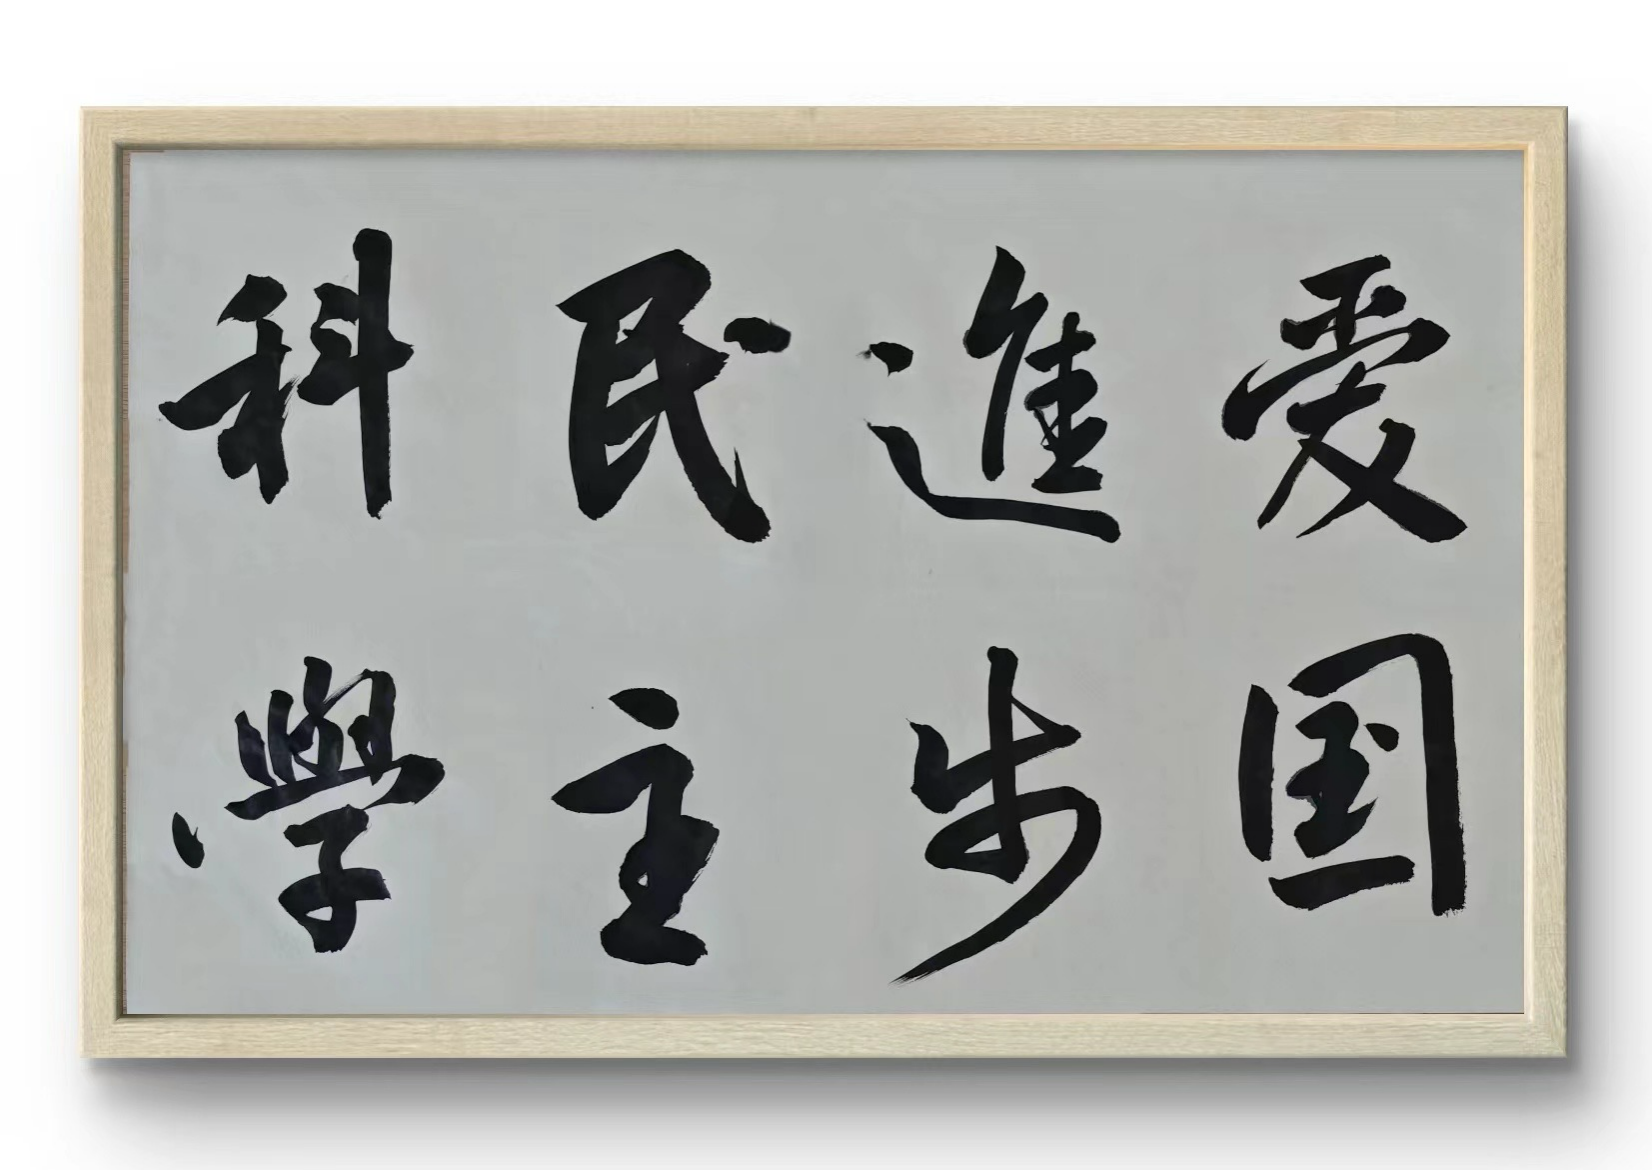 爱国
進步
民主
科學